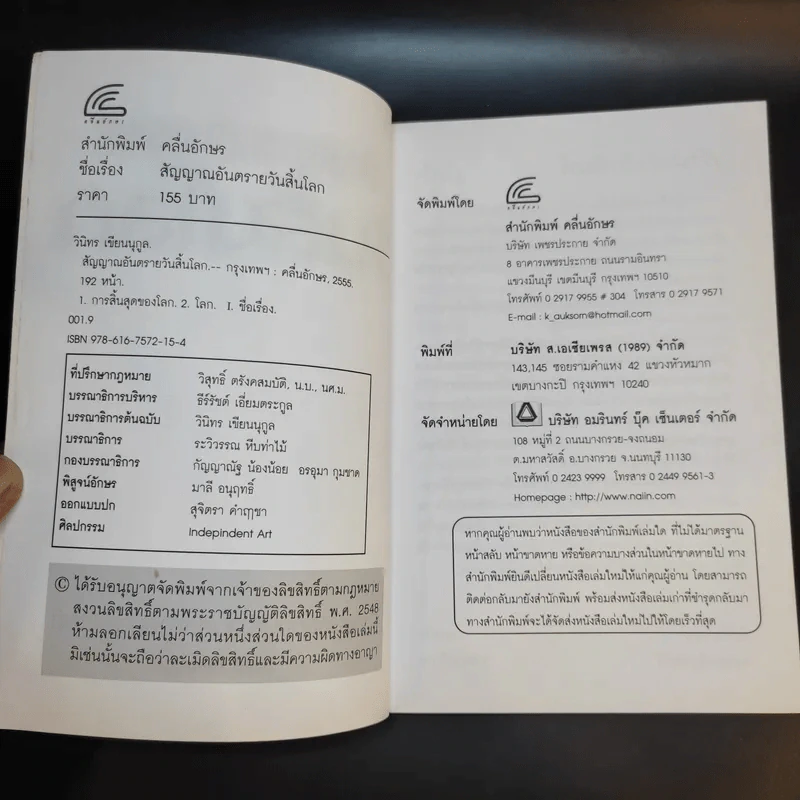 คลื่นอักษร
สำนักพิมพ์ คลื่นอักษร
ชื่อเรื่อง สัญญาณอันตรายวันสิ้นโลก
ราคา 155 บาท
วินิทร เขียนนุกูล.
สัญญาณอันตรายวันสิ้นโลก.-- กรุงเทพฯ : คลื่นอักษร, 2555.
192 หน้า.
1. การสิ้นสุดของโลก. 2. โลก. I. ชื่อเรื่อง.
001.9
ISBN 978-616-7572-15-4
ที่ปรึกษากฎหมาย วิสุทธิ์ ตรังคสมบัติ, น.บ., นศ.ม.
บรรณาธิการบริหาร ธีร์รัชต์ เอี่ยมตระกูล
บรรณาธิการต้นฉบับ วินิทร เขียนนุกูล
บรรณาธิการ ระวิวรรณ หีบท่าไม้
กองบรรณาธิการ กัญญาณัฐ น้องน้อย อรอุมา กุมชาด
พิสูจน์อักษร มาลี อนุฤทธิ์
ออกแบบปก สุจิตรา คำฤๅชา
ศิลปกรรม Indepindent Art
© ได้รับอนุญาตจัดพิมพ์จากเจ้าของลิขสิทธิ์ตามกฎหมาย
สงวนลิขสิทธิ์ตามพระราชบัญญัติลิขสิทธิ์ พ.ศ. 2548
ห้ามลอกเลียนไม่ว่าส่วนหนึ่งส่วนใดของหนังสือเล่มนี้
มิเช่นนั้นจะถือว่าละเมิดลิขสิทธิ์และมีความผิดทางอาญา
จัดพิมพ์โดย
คลื่นอักษร
สำนักพิมพ์ คลื่นอักษร
บริษัท เพชรประกาย จำกัด
8 อาคารเพชรประกาย ถนนรามอินทรา
แขวงมีนบุรี เขตมีนบุรี กรุงเทพฯ 10510
โทรศัพท์ 0 2917 9955 # 304 โทรสาร 0 2917 9571
E-mail : k_auksorn@hotmail.com
พิมพ์ที่ บริษัท ส.เอเซียเพรส (1989) จำกัด
143,145 ซอยรามคำแหง 42 แขวงหัวหมาก
เขตบางกะปิ กรุงเทพฯ 10240
จัดจำหน่ายโดย บริษัท อมรินทร์ บุ๊ค เซ็นเตอร์ จำกัด
108 หมู่ที่ 2 ถนนบางกรวย-จงถนอม
ต.มหาสวัสดิ์ อ.บางกรวย จ.นนทบุรี 11130
โทรศัพท์ 0 2423 9999 โทรสาร 0 2449 9561-3
Homepage : http://www.naiin.com
หากคุณผู้อ่านพบว่าหนังสือของสำนักพิมพ์เล่มใด ที่ไม่ได้มาตรฐาน
หน้าสลับ หน้าขาดหาย หรือข้อความบางส่วนในหน้าขาดหายไป ทาง
สำนักพิมพ์ยินดีเปลี่ยนหนังสือเล่มใหม่ให้แก่คุณผู้อ่าน โดยสามารถ
ติดต่อกลับมายังสำนักพิมพ์ พร้อมส่งหนังสือเล่มเก่าที่ชำรุดกลับมา
ทางสำนักพิมพ์จะได้จัดส่งหนังสือเล่มใหม่ไปให้โดยเร็วที่สุด